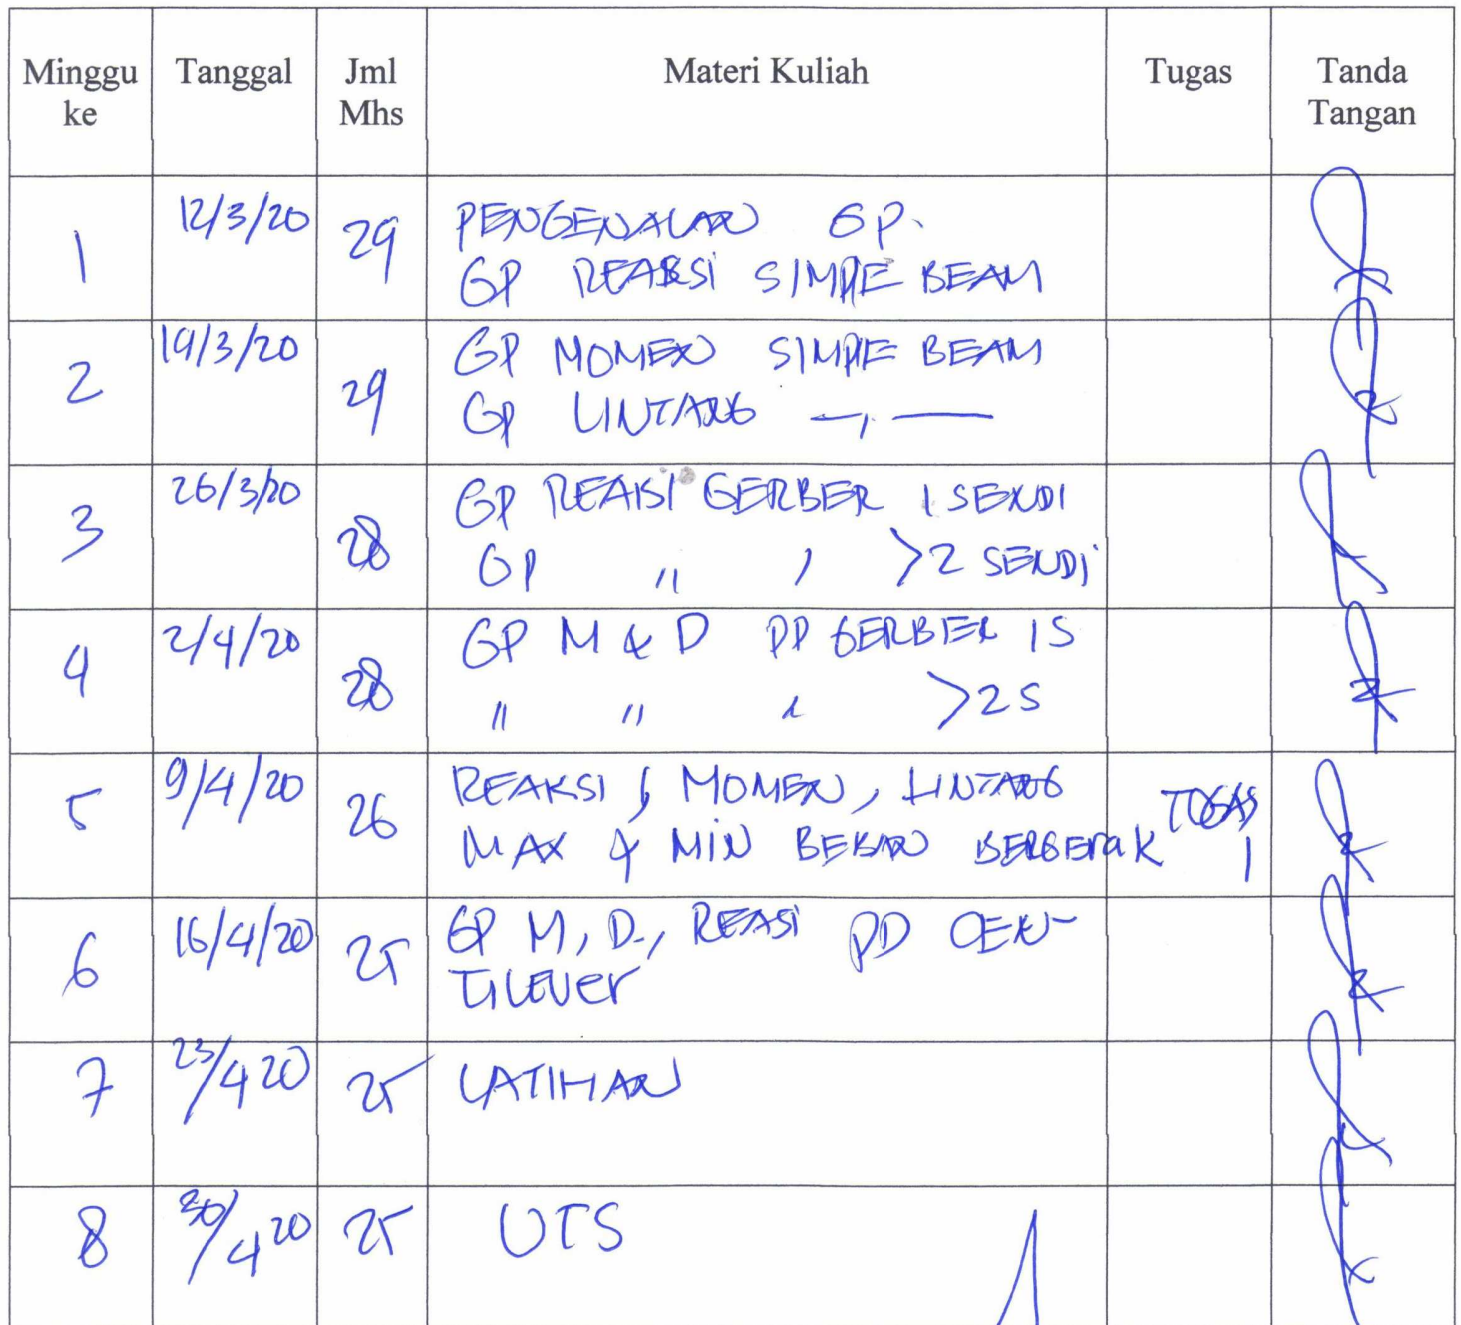 Minggu ke Tanggal Jml Mhs Materi Kuliah Tugas Tanda Tangan
1 12/3/20 29 PENGENALAN GP.
GP REAKSI SIMPLE BEAM
2 19/3/20 29 GP MOMEN SIMPLE BEAM
GP LINTANG —,—
3 26/3/20 28 GP REAKSI GERBER 1 SENDI
GP " , >2 SENDI
4 2/4/20 28 GP M & D PD GERBER 1S
" " " >2S
5 9/4/20 26 REAKSI, MOMEN, LINTANG TUGAS
MAX & MIN BEBAN BERGERAK 1
6 16/4/20 25 GP M, D, REASI PD CEN-
TILEVER
7 23/4 20 25 LATIHAN
8 30/4 20 25 UTS